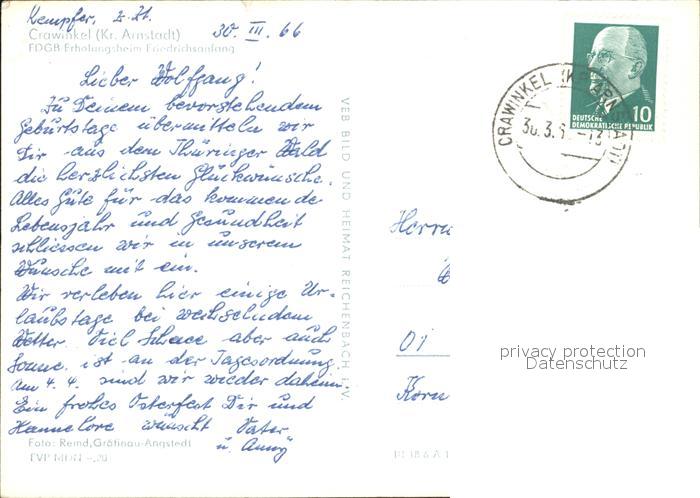 Kempfer, z. Zt.
Crawinkel (Kr. Arnstadt) 30. III. 66
FDGB-Erholungsheim Friedrichsanfang
Lieber Wolfgang!
Zu Deinem bevorstehendem
Geburtstage übermitteln wir
Dir aus dem Thüringer Wald
die herzlichsten Glückwünsche.
Alles Gute für das kommende
Lebensjahr und Gesundheit
schliessen wir in unserem
Wunsche mit ein.
Wir verleben hier einige Ur-
laubstage bei wechselndem
Wetter. Viel Schnee aber auch
Sonne ist an der Tagesordnung.
Am 4. 4. sind wir wieder daheim.
Ein frohes Osterfest Dir und
Hannelore wünscht Vater
u. Anny
Foto: Remd, Gräfinau-Angstedt
EVP MDN -,20
VEB BILD UND HEIMAT REICHENBACH I. V.
CRAWINKEL (KR. ARNSTADT)
30.3.6 -13
10
DEUTSCHE
DEMOKRATISCHE REPUBLIK
Herrn
Korn
privacy protection
Datenschutz